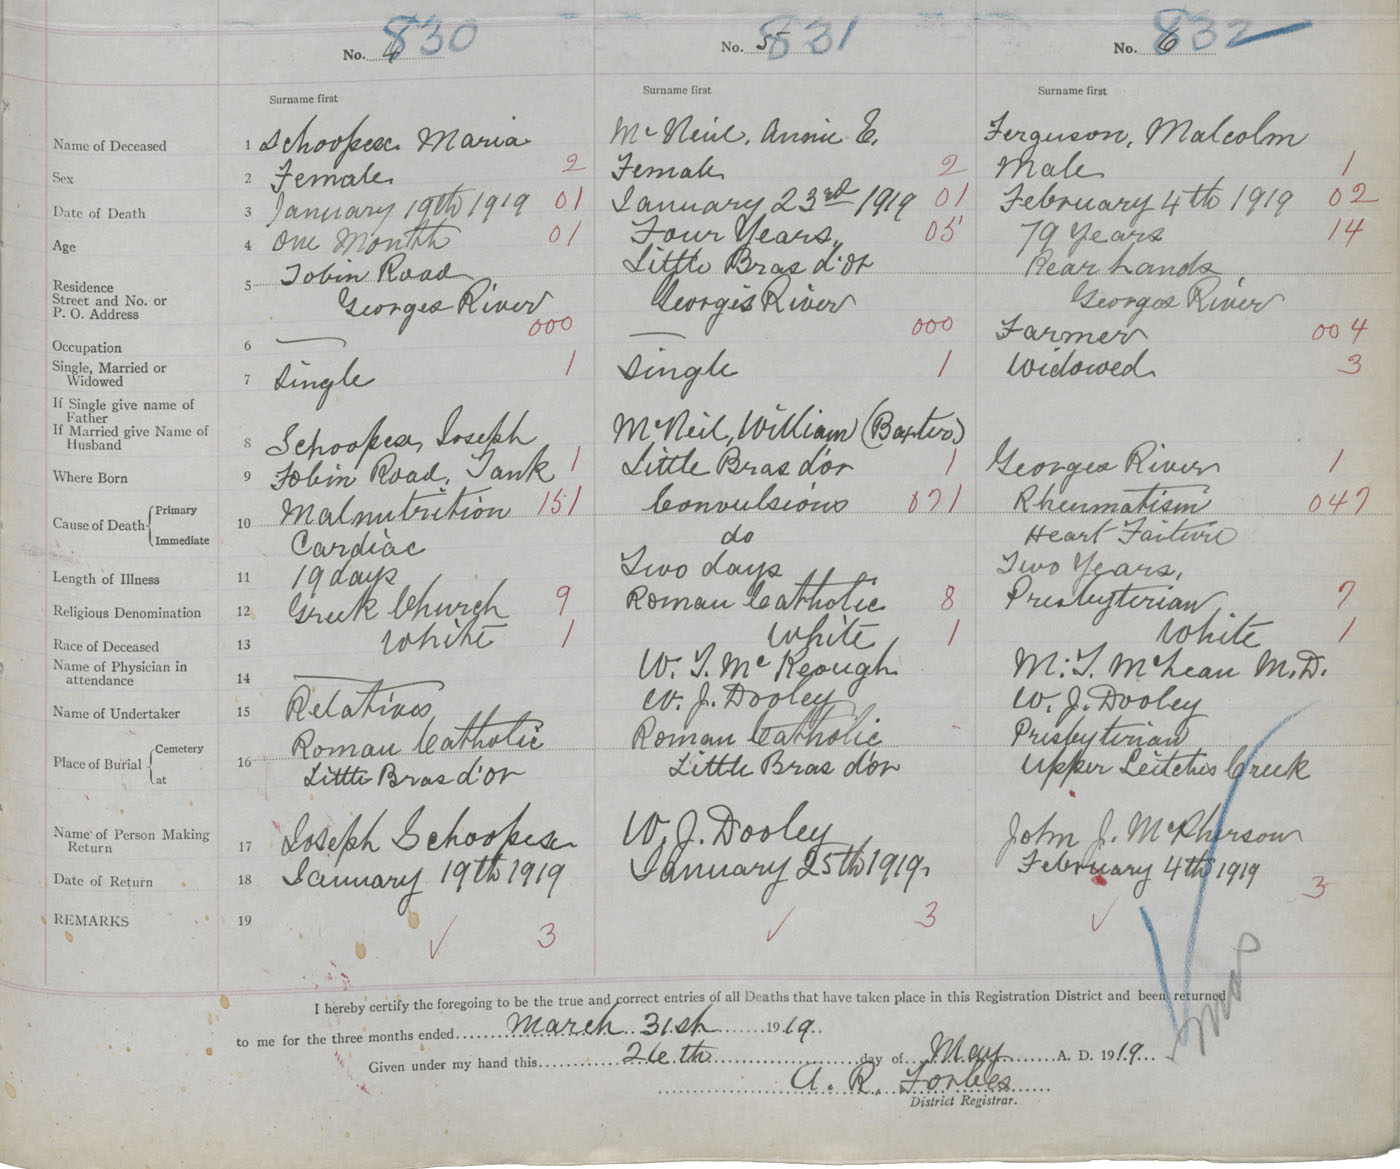 830 831 832
No. 4 No. 5 No. 6
Surname first Surname first Surname first
Name of Deceased 1 Schoopex Maria McNeil, Annie E. Ferguson, Malcolm
Sex 2 Female 2 Female 2 Male 1
Date of Death 3 January 19th 1919 01 January 23rd 1919 01 February 4th 1919 02
Age 4 One Month 01 Four Years, 05 79 Years 14
Residence 5 Tobin Road Little Bras d'or Rear Lands
Street and No. or
P. O. Address Georges River Georges River Georges River
Occupation 6 — 000 — 000 Farmer 004
Single, Married or
Widowed 7 Single 1 Single 1 Widowed 3
If Single give name of
Father
If Married give Name of
Husband 8 Schoopex, Joseph McNeil, William (Baxter)
Where Born 9 Tobin Road, Tank 1 Little Bras d'or 1 Georges River 1
Cause of Death { Primary 10 Malnutrition 151 Convulsions 071 Rheumatism 047
Immediate Cardiac do Heart Failure
Length of Illness 11 19 days Two days Two Years,
Religious Denomination 12 Greek Church 9 Roman Catholic 8 Presbyterian 7
Race of Deceased 13 White 1 White 1 White 1
Name of Physician in
attendance 14 — W. T. McKeough M. T. McLean M.D.
Name of Undertaker 15 Relatives W. J. Dooley W. J. Dooley
Place of Burial { Cemetery 16 Roman Catholic Roman Catholic Presbyterian
at Little Bras d'or Little Bras d'or Upper Leitches Creek
Name of Person Making
Return 17 Joseph Schoopex W. J. Dooley John J. McPherson
Date of Return 18 January 19th 1919 January 25th 1919. February 4th 1919
REMARKS 19 ✓ 3 ✓ 3 ✓ 3
I hereby certify the foregoing to be the true and correct entries of all Deaths that have taken place in this Registration District and been returned
to me for the three months ended March 31st 1919.
Given under my hand this 26th day of May A. D. 1919
A. R. Forbes
District Registrar.